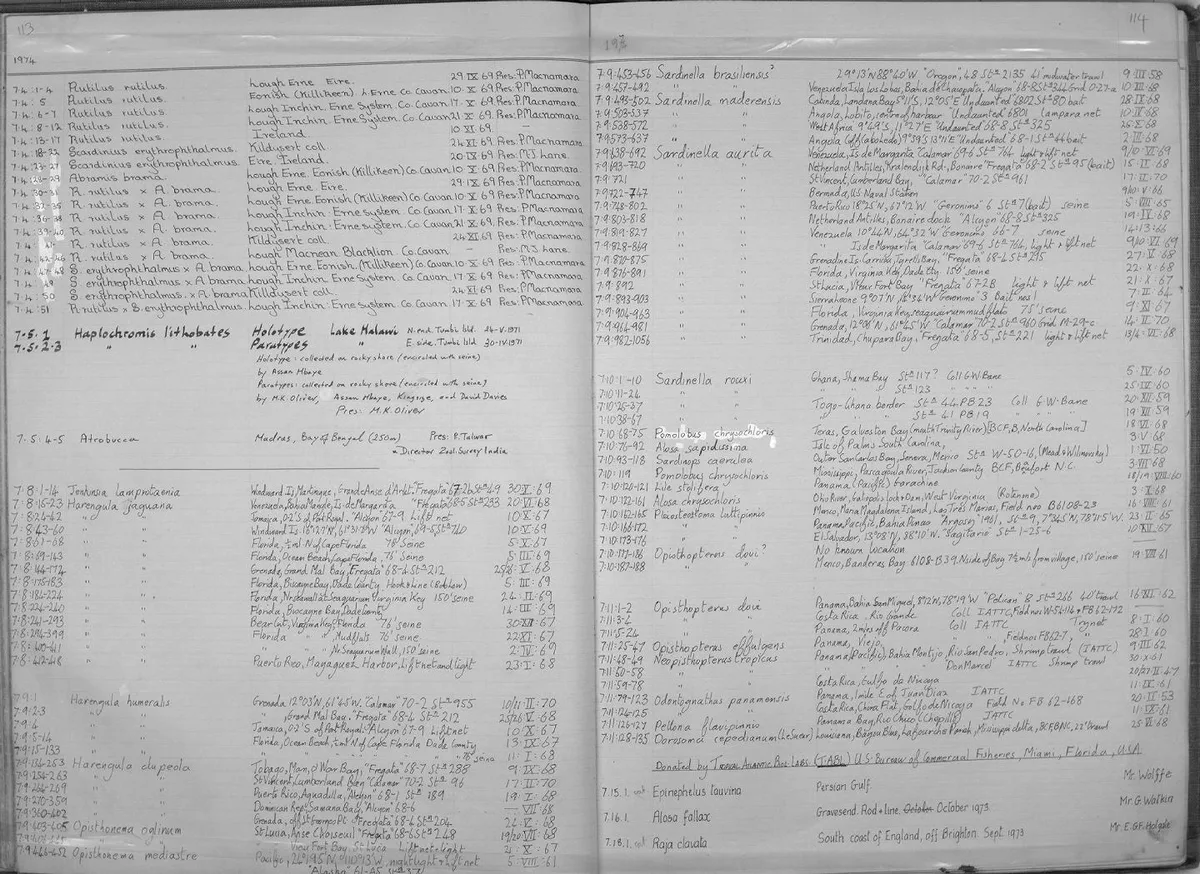 113
1974
7.4:1-4 Rutilus rutilus. Lough Erne Eire. 29 IX 69 Pres: P. Macnamara
7.4:5 Rutilus rutilus. Eonish (Killikeen) L. Erne Co. Cavan. 10·X·69 Pres: P. Macnamara
7.4:6-7 Rutilus rutilus. Lough Inchin. Erne System. Co. Cavan. 17·X·69 Pres: P. Macnamara
7.4:8-12 Rutilus rutilus. Lough Inchin. Erne System. Co. Cavan 21 X 69 Pres: P. Macnamara
7.4:13-17 Rutilus rutilus. Ireland. 10 XI. 69 —
7.4:18-22 Scardinius erythrophthalmus. Killdysert coll 24 XI 69 Pres: P. Macnamara
Scardinius erythrophthalmus. Eire, Ireland. 20 IX 69 Pres: M.J. Lane.
Abramis brama. Lough Erne. Eonish (Killikeen) Co. Cavan. 10·X·69 Pres: P. Macnamara
R. rutilus x A. brama. Lough Erne Eire. 29 IX 69 Pres: P. Macnamara
R. rutilus x A. brama. Lough Erne. Eonish (Killikeen) Co Cavan 10·X·69 Pres: P. Macnamara
R. rutilus x A. brama. Lough Inchin: Erne System Co. Cavan 17·X·69 Pres: P. Macnamara
R. rutilus x A. brama. Lough Inchin: Erne System. Co. Cavan 21 X 69 Pres: P. Macnamara
R. rutilus x A. brama. Killdysert coll. 24 XI 69 Pres: P. Macnamara
R. rutilus x A. brama. Lough Macnean Blacklion Co. Cavan — Pres: M.J. Lane
S. erythrophthalmus x A. brama. Lough Erne. Eonish. (Killikeen) Co. Cavan 10·X·69 Pres: P. Macnamara
S. erythrophthalmus x A. brama. Lough Inchin. Erne System. Co. Cavan 17 X 69 Pres: P. Macnamara
7.4:50 S. erythrophthalmus. x A. brama Killdysert coll. 24 XI 69 Pres: P. Macnamara
7.4:51 R. rutilus x S. erythrophthalmus. Lough Inchin: Erne System Co. Cavan. 17·X·69 Pres: P. Macnamara
7.5.1 Haplochromis lithobates Holotype Lake Malawi N. end. Tumbi Isld. 24-V-1971
7.5:2-3 " " Paratypes " E. side. Tumbi Isld. 30-IV-1971
Holotype: collected on rocky shore (encircled with seine)
by Assan Mbaye
Paratypes: collected on rocky shore (encircled with seine)
by M.K. Oliver, Assan Mbaye, Kingsize, and David Davies
Pres: M.K. Oliver
7.5:4-5 Atrobucca Madras, Bay of Bengal (250m) Pres: P. Talwar
Director Zool. Survey India
7:8:1-14 Jenkinsia lamprotaenia Windward Is, Martinique, Grande Anse d'Arlet "Fregata" 67-2b Stn 49 30·V·69
7:8:15-23 Harengula jaguana Venezuela, Isla de Margarita "Fregata" 68·5 Stn 233 20·VI·68
" " Jamaica, 02'S of Port Royal. Alcyon 67-9 Lift net 10·X·67
7:8:61-68 " " Florida, ½ml. N of Cape Florida 78' Seine 5·X·67
7:8:69-143 " " Florida, Ocean Beach, Cape Florida, 75' Seine 5·III·69
7:8:144-174 " " Grenada, Grand Mal Bay, "Fregata" 68-4 Stn 212 25/26·V·68
7:8:175-183 " " Florida, Biscayne Bay, Dade County Hook & Line 5·III·69
7:8:184-224 " " Virginia Key 150' seine 24·II·69
7:8:224-240 " " Florida, Biscayne Bay, Dade County 14·III·69
7:8:241-293 " " Bear Cut, Virginia Key, Florida 76' seine
7:8:294-399 " " Florida " Mudflats 76' seine. 22·XI·67
" " Nr Seaquarium, 150' seine 2·IV·69
7:8:412-418 " " Puerto Rico, Mayaguez Harbor, Lift net and light 23·I·68
7.9:1 Harengula humeralis Grenada, 12°03'N, 61°45'W. "Calamar" 70-2 Stn 955 10/11·II·70
7.9:2-3 " " Grand Mal Bay, "Fregata" 68-4 Stn 212 25/26·V·68
7.9:4 " " Jamaica, 02'S of Port Royal. Alcyon 67-9 Lift net 10·X·67
7.9:5-14 " " Florida, Ocean Beach, ½ml N of Cape Florida Dade County 13·IX·67
7.9:15-133 " " 78' seine 11·I·68
7.9:134-253 Harengula clupeola Tobago, Man o' War Bay, "Fregata" 68-7 Stn 288 9·IX·68
7.9:254-263 " " St Vincent, Cumberland Bay "Calamar" 70-2 Stn 96 17·II·70
7.9:264-269 " " Puerto Rico, Aguadilla, "Alcyon" 68-1 Stn 189 19·I·68
7.9:270-359 " " Dominican Rep, Samana Bay, "Alcyon" 68-6 — VII·68
7.9:360-402 " " Grenada, off St Georges Pt "Fregata" 68-4 Stn 204 24·V·68
7.9:403-405 Opisthonema oglinum St Lucia, Anse Choiseul "Fregata" 68-6 Stn 248 19/20·VII·68
" " View Fort Bay, St Lucia Lift net & light 21·X·67
7.9:446-452 Opisthonema mediastre Pacific, 24°19.5 N, 110°13'W, nightlight & lift net 5·VIII·61
"Alaska" 61-A5 Stn 37
114
7·9:453-456 Sardinella brasiliensis? 29°13'N 88°40'W "Oregon", 48 Stn 2135 41' midwater trawl 9·III·58
7·9:457-492 " " Venezuela Isla Los Lobos, Bahia de Charagato, "Alcyon" 68-8 10·XII·68
7·9:493-502 Sardinella maderensis Cabinda, Landana Bay 5°11'S, 12°05'E Undaunted 6802 Stn 80 bait 28·IX·68
7·9:503-537 " " Angola, Lobito, centre of harbour Undaunted 6801 Lampara net 10·II·68
7·9:538-572 " " West Africa 9°49'S, 11°27'E Undaunted 68-8 Stn 325
7·9:573-637 " " Angola
7·9:638-692 Sardinella aurita Venezuela, Is. de Margarita "Calamar" 69-6 Stn 764 light & lift net 9/10·VI·69
7·9:693-720 " " Netherland Antilles, Kralendijk Rd, Bonaire "Fregata" 68-2 Stn 95 (bait) 2·III·68
7·9:721 " " St Vincent, Cumberland Bay, "Calamar" 70-2 Stn 961 17·II·70
7·9:722-747 " " Bermuda, US Naval Station
7·9:748-802 " " Puerto Rico 18°25'N, 67°12'W "Geronimo" 6 Stn 7 (bait) seine 5·VIII·65
7·9:803-818 " " Netherland Antilles, Bonaire dock "Alcyon" 68-8 Stn 325
7·9:819-827 " " Venezuela 10°44'N, 64°32'W "Geronimo" 66-7 seine
7·9:828-869 " " " Is de Margarita "Calamar" 69-6 Stn 764, light & lift net 9/10·VI·69
7·9:870-875 " " Grenadine Is, Carriacou, Tyrrells Bay, "Fregata" 68-4 Stn 27·V·68
7·9:876-891 " " Florida, Virginia Key, Dade Cty 150' seine 22·X·68
7·9:892 " " St Lucia, View Fort Bay "Fregata" 67-2B light & lift net 21·X·67
7·9:893-903 " " Sierra Leone 9°07'N "Geronimo" 3 Bait no 1 7·II·64
7·9:904-963 " " Florida, Virginia Key, Seaquarium mudflat 75' seine 9·XI·67
7·9:964-981 " " Grenada, 12°01'N, 61°45'W "Calamar" 70-2 Stn 960 14·II·70
7·9:982-1056 " " Trinidad, Chupara Bay, "Fregata" 68-5, Stn 221 light & lift net 13/4·VI·68
7·10:1-10 Sardinella rouxi Ghana, Shama Bay Stn 117? Coll G.W. Bane 5·IV·60
7·10:11-24 " " " " Stn 123 " " " 25·IV·60
7·10:25-37 " " Togo-Ghana border Stn 44. PB 23 Coll G.W. Bane 20·XII·59
7·10:38-67 " " " " Stn 41 PB 19 " " 19·XII·59
7·10:68-75 Pomolobus chrysochloris Texas, Galveston Bay (mouth Trinity River) [BCF, B, North Carolina] 18·VI·68
7·10:76-92 Alosa sapidissima Isle of Palms South Carolina, 3·V·68
7·10:93-118 Sardinops caerulea Outer San Carlos Bay, Sonora, Mexico Stn W-50-16, (Mead & Wilimovsky) 1·VI·50
7·10:119 Pomolobus chrysochloris Mississippi, Pascagoula River, Jackson County BCF, Beaufort N.C. 3·VII·68
7·10:120-121 Lile stolifera Panama (Pacific) Farachine
7·10:122-161 Alosa chrysochloris Ohio River, Gallipolis Lock & Dam, West Virginia (Rotenone) 3·X·68
7·10:162-165 Pliosteostoma lutipinnis Mexico, Maria Magdalena Island, Las Tres Marias, Field no B6108-23 16·VIII·61
7·10:166-172 " " Panama, Pacific, Bahia Pinas "Argosy" 1961, Stn 9, 7°34.5'N, 78°11.5'W. 23·II·65
7·10:173-176 " " El Salvador, 13°08'N, 88°10'W. "Sagitario" Stn 1-25-6
7·10:177-186 Opisthopterus dovi? No known location
7·10:187-188 " " Mexico, Banderas Bay 6108-B39, N side of Bay 7½mi from village, 150' seine 19·VIII·61
7·11:1-2 Opisthopterus dovi Panama, Bahia San Miguel, 8°12'N, 78°19'W "Pelican" 8 Stn 266 40' trawl 16·XII·62
7·11:3-4 " " Costa Rica. Rio Grande Coll IATTC, Field nos W-54-114 & FB 62-172
7·11:5-24 " " Panama, 2 mis off Pacora Coll IATTC Trynet 8·I·60
7·11:25-47 Opisthopterus effulgens Panama, Viejo " Field no FB 62-7, " 28·I·60
7·11:48-49 Neopisthopterus tropicus Panama (Pacific), Bahia Montijo, Rio San Pedro, Shrimp trawl (IATTC) 9·III·62
7·11:50-58 " " "Don Marcel" IATTC Shrimp trawl 30·X·61
7·11:59-78 " " Costa Rica, Gulfo de Nicoya 20/27·II·47
7·11:79-123 Odontognathus panamensis Panama, 1 mile E of Juan Diaz IATTC 11·IX·61
7·11:124-125 " " Costa Rica, Chira Flat, Golfo de Nicoya Field No FB 62-468 20·II·53
7·11:126-127 Pellona flavipinnis Panama Bay, Rio Chico (Chepillo) IATTC 11·IX·61
7·11:128-135 Dorosoma cepedianum (Le Sueur) Louisiana, Lafourche Parish, Mississippi delta, BCF, B, NC, 22' trawl 25·VI·68
Donated by Tropical Atlantic Biol. Labs. (TABL) U.S. Bureau of Commercial Fisheries, Miami, Florida, U.S.A.
7.15.1. skt Epinephelus tauvina Persian Gulf. Mr. Wolffe
7.16.1. Alosa fallax Gravesend. Rod & line. October October 1973. Mr. G. Watkin
7.18.1. skt Raja clavata South coast of England, off Brighton. Sept. 1973 Mr. E.G.F. Holgate